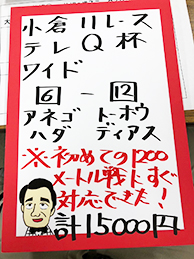 小倉11レース
テレQ杯
ワイド
6-12
アネゴ トーホウ
ハダ ディアス
※初めての1200
メートル戦にすぐ
対応できた!
計15000円